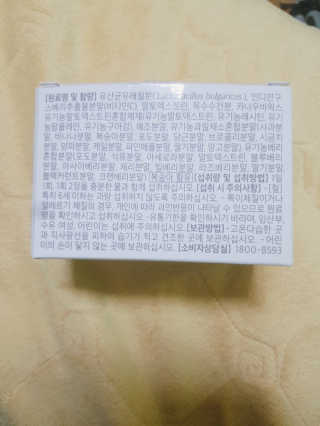 [원료명 및 함량] 유산균유래질분(Lactobacillus bulgaricus), 인디언구
스베리추출물분말(비타민C), 말토덱스트린, 옥수수전분, 카나우바왁스
유기농말토덱스트린혼합제제(유기농말토덱스트린, 유기농레시틴, 유기
농팜올레인, 유기농구아검), 해조분말, 유기농과일채소혼합분말(사과분
말, 바나나분말, 복숭아분말, 포도분말, 당근분말, 브로콜리분말), 시금치
분말, 양파분말, 케일분말, 파인애플분말, 딸기분말, 망고분말), 유기농베리
혼합분말(포도분말, 석류분말, 아세로라분말, 말토덱스트린, 블루베리
분말, 아사이베리분말, 체리분말, 빌베리분말, 라즈베리분말, 딸기분말
블랙커런트분말, 크랜베리분말) [섭취량 및 섭취방법] 1일
1회, 1회 2정을 충분한 물과 함께 섭취하십시오. [섭취 시 주의사항]
특히 6세이하는 과량 섭취하지 않도록 주의하십시오. -특이체질이거나
알레르기 체질의 경우, 개인에 따라 과민반응이 나타날 수 있으므로 원료
를 확인하시고 섭취하십시오 -유통기한을 확인하시기 바라며, 임산부
수유 여성, 어린이는 섭취에 주의하십시오 [보관방법] -고온다습한 곳
과 직사광선을 피하여 습기가 적고 건조한 곳에 보관하십시오. -어린
이의 손이 닿지 않는 곳에 보관하십시오. [소비자상담실] 1800-8593